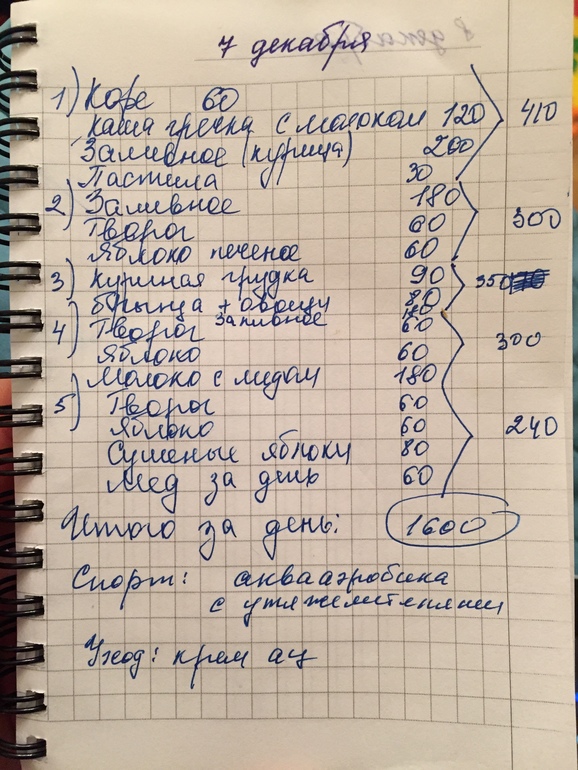 7 декабря
1) Кофе 60
каша гречка с молоком 120 410
Заливное (курица) 200
Пастила 30
2) Заливное 180
Творог 60 300
Яблоко печеное 60
3) куриная грудка 90 350
брынза + овощи 80
заливное 180
4) Творог 60
Яблоко 60 300
Молоко с медом 180
5) Творог 60
Яблоко 60 240
Сушеные яблоки 80
Мед за день 60
Итого за день: 1600
Спорт: аквааэробика
с утяжелителями
Уход: крем ац